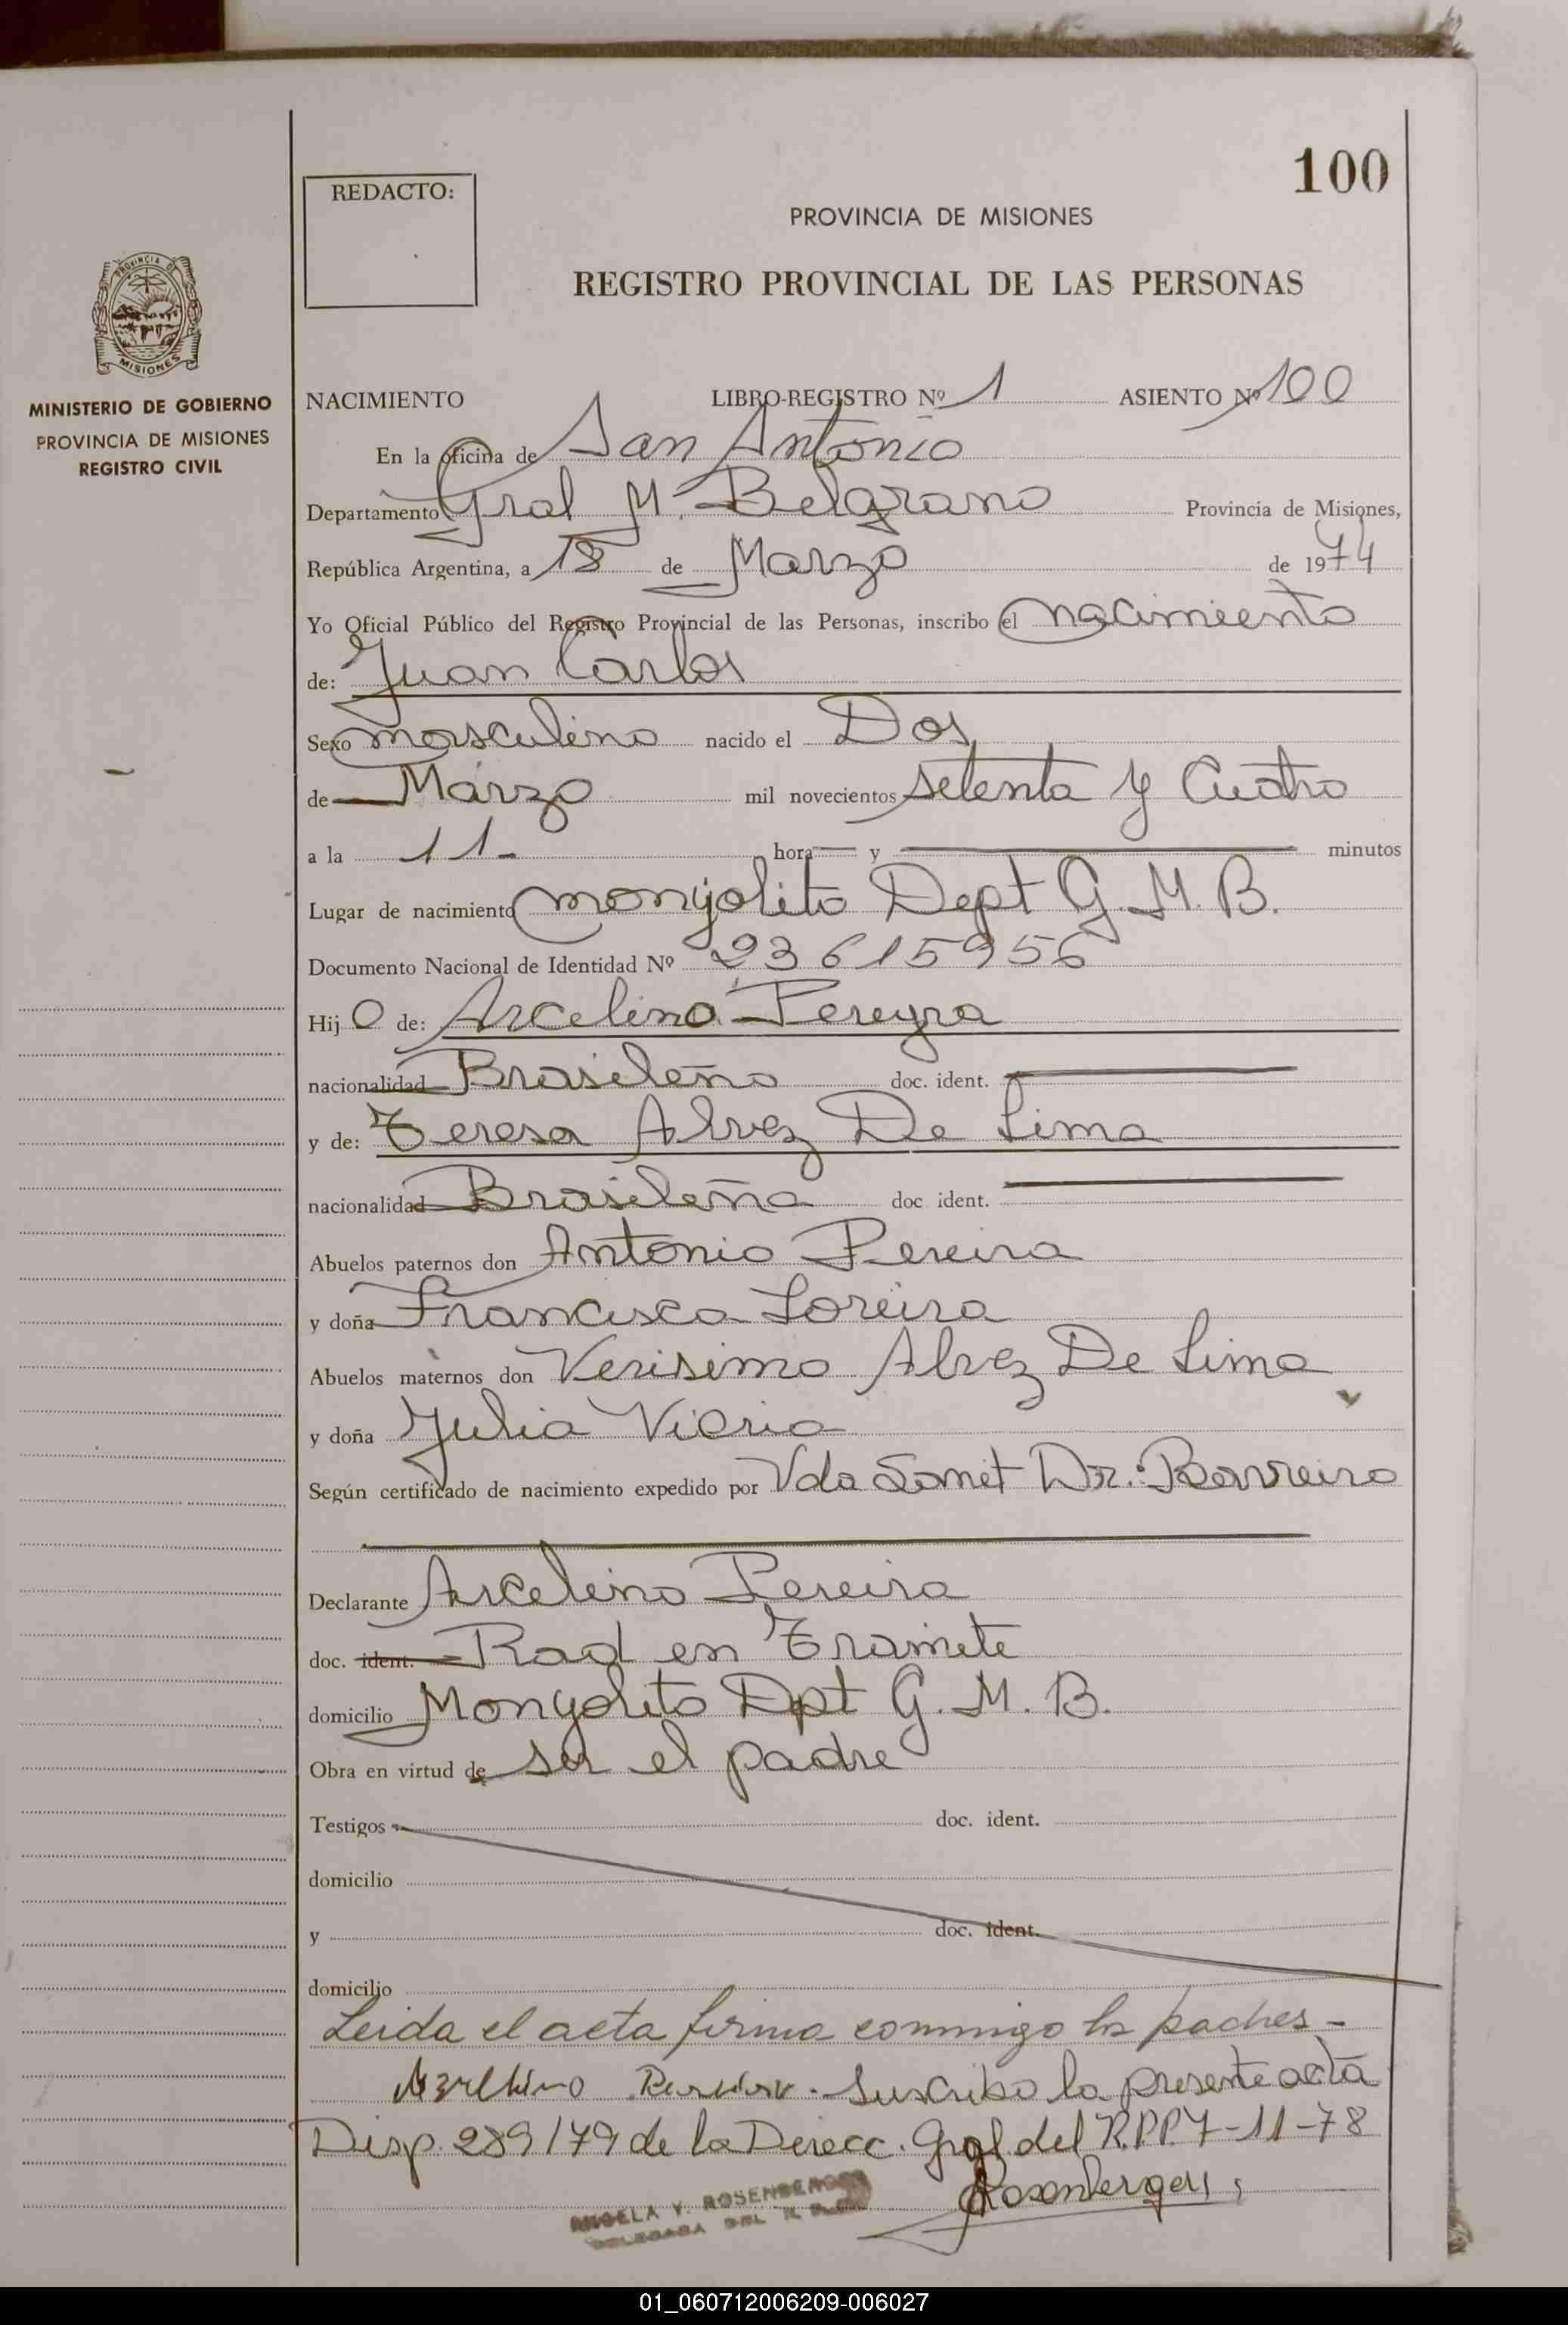 100
REDACTO:
PROVINCIA DE MISIONES
REGISTRO PROVINCIAL DE LAS PERSONAS
PROVINCIA DE
MISIONES
MINISTERIO DE GOBIERNO
PROVINCIA DE MISIONES
REGISTRO CIVIL
NACIMIENTO LIBRO-REGISTRO Nº 1 ASIENTO Nº 100
En la oficina de San Antonio
Departamento Gral M. Belgrano Provincia de Misiones,
República Argentina, a 18 de Marzo de 1974
Yo Oficial Público del Registro Provincial de las Personas, inscribo el nacimiento
de: Juan Carlos
Sexo masculino nacido el Dos
de Marzo mil novecientos setenta y Cuatro
a la 11- hora y minutos
Lugar de nacimiento mongolito Dept G. M. B.
Documento Nacional de Identidad Nº 23615956
Hij o de: Arcelino Pereyra
nacionalidad Brasileño doc. ident.
y de: Teresa Alvez De Lima
nacionalidad Brasileña doc ident.
Abuelos paternos don Antonio Pereira
y doña Francisca Loreira
Abuelos maternos don Verisimo Alvez De Lima
y doña Julia
Según certificado de nacimiento expedido por Vda Sanit Dr.: Barreiro
Declarante Arcelino Pereira
doc. ident. Rad en Tramite
domicilio Mongolito Dpt G. M. B.
Obra en virtud de ser el padre
Testigos doc. ident.
domicilio
y doc. ident.
domicilio
Leida el acta firma conmigo los padres -
Suscribo la presente acta
Disp. 289/79 de la Direcc. Gral del R.P.P. 7-11-78
Rosenberger
ANGELA Y. ROSENBERGER
DELEGADA DEL R. P. P.
01_060712006209-006027